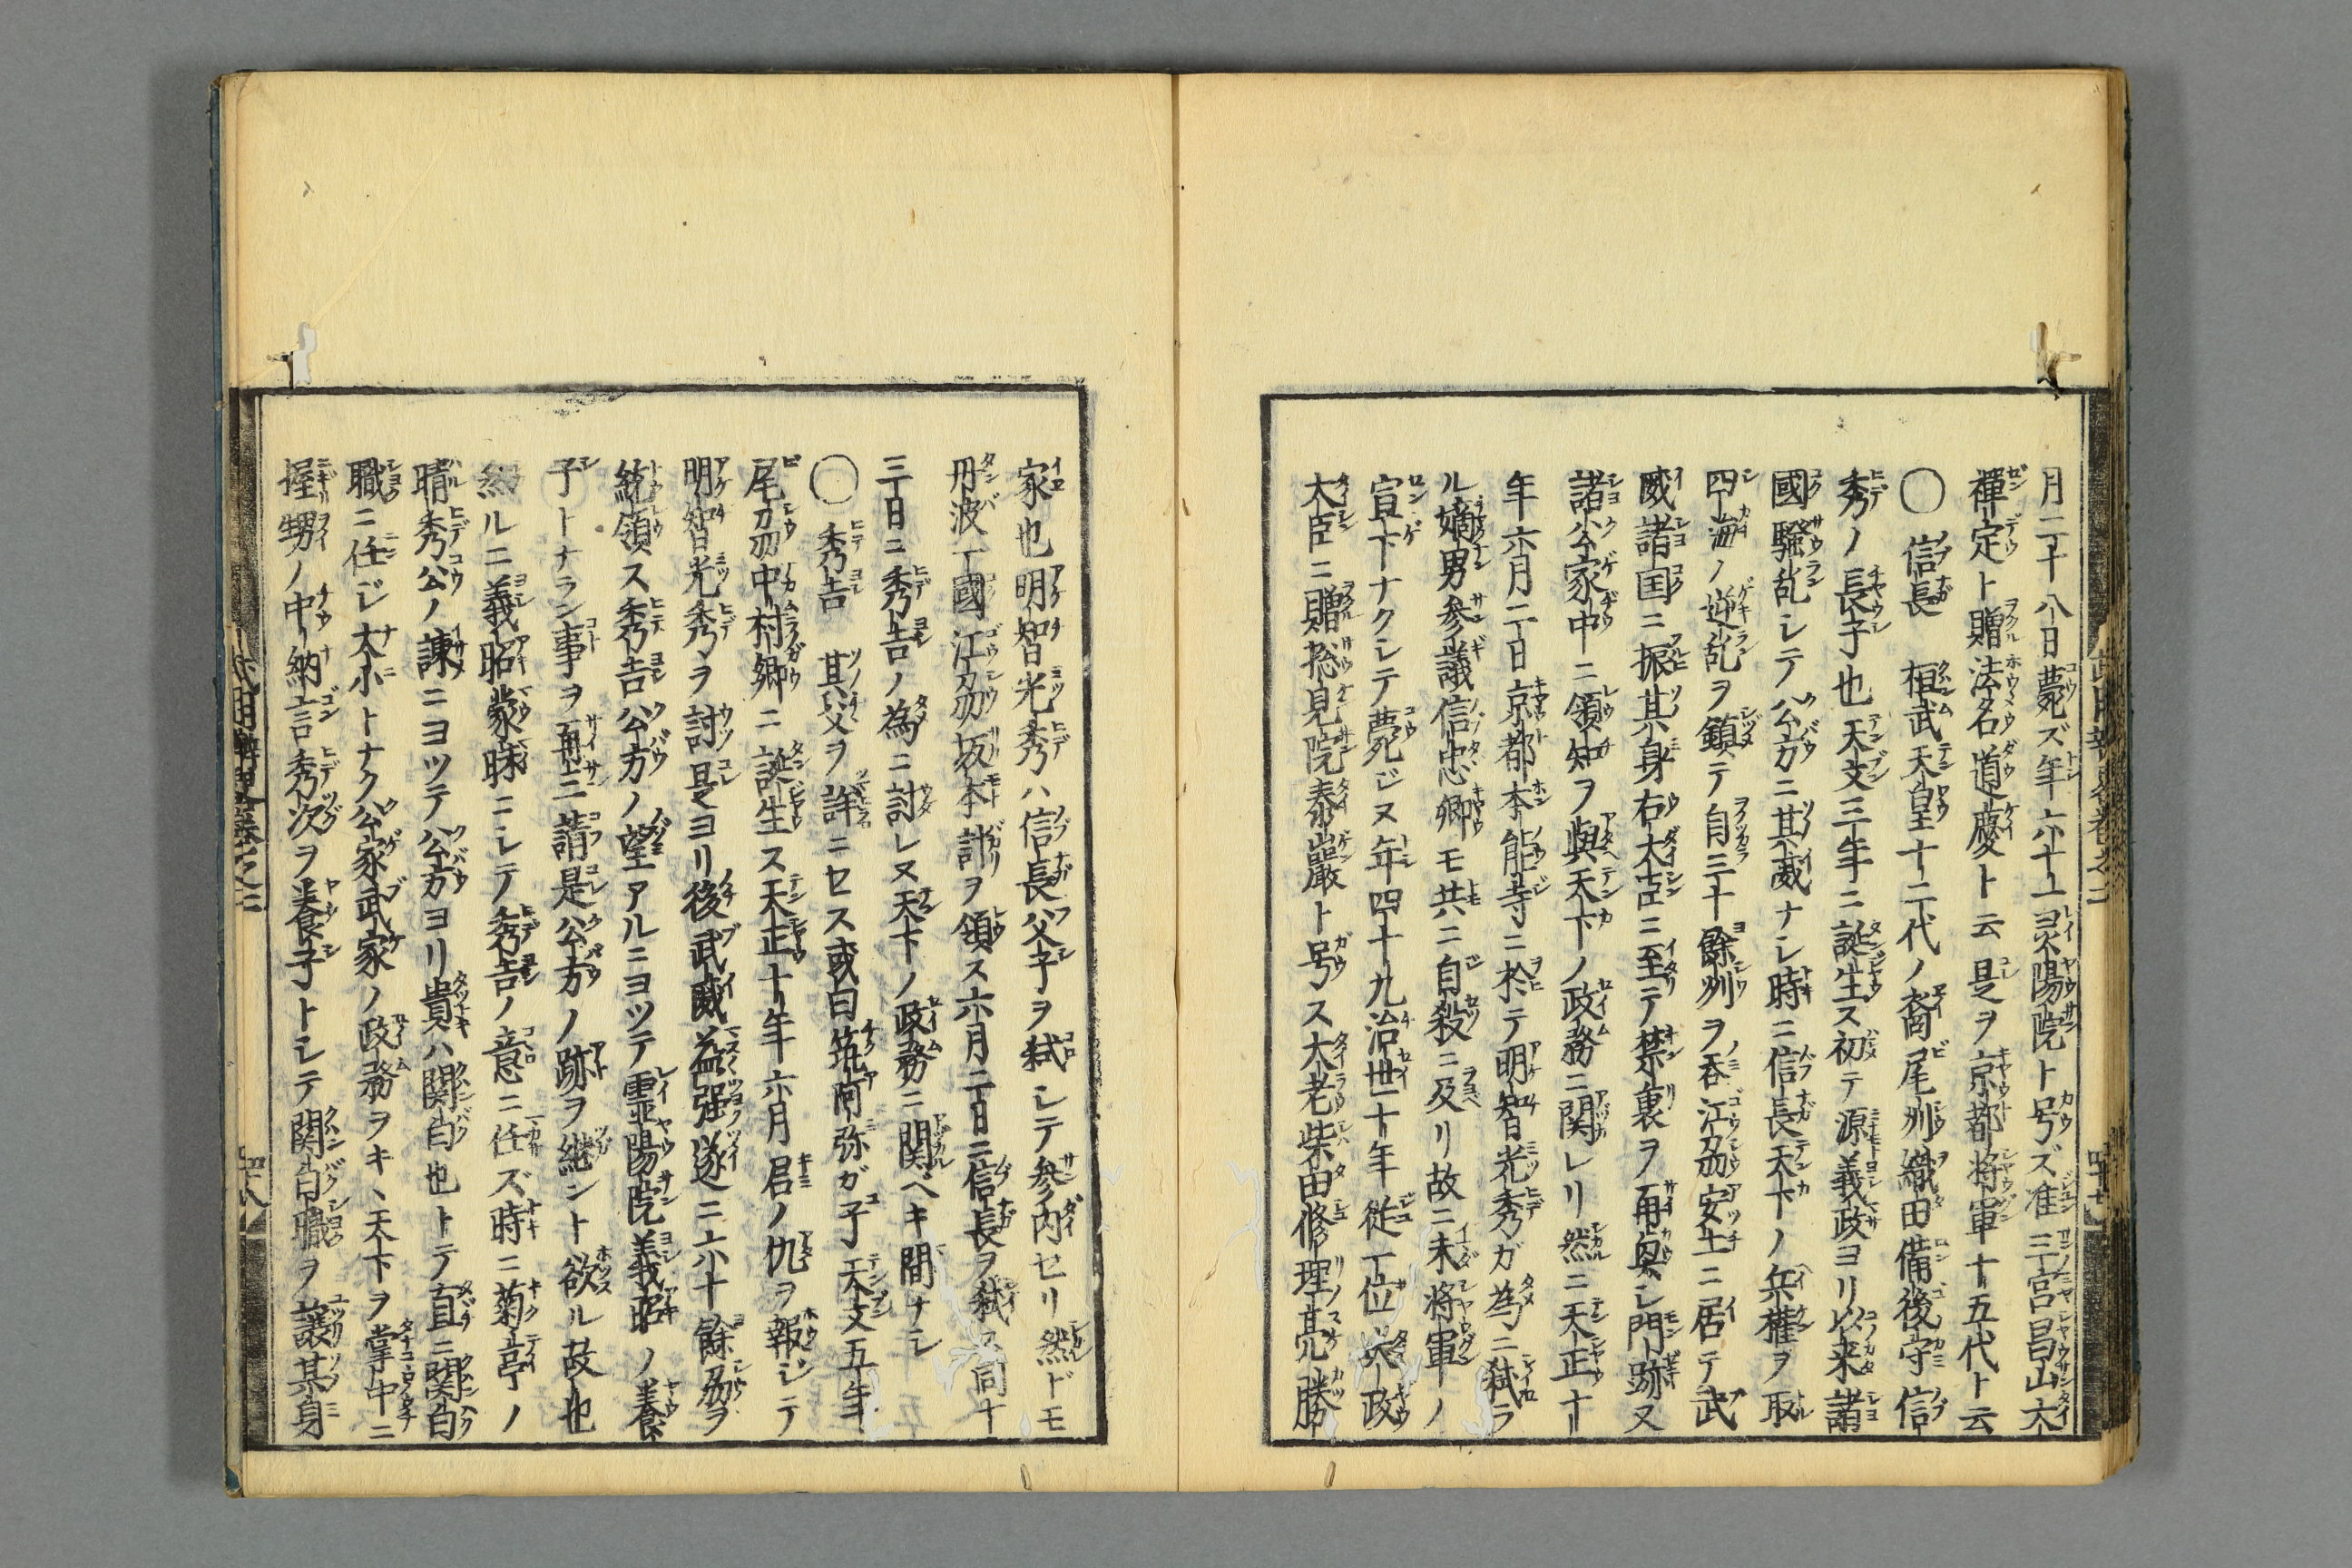 月二十八日薨ズ年六十一灵陽院ト号ズ准三宮昌山大
禅定ト贈法名道慶ト云是ヲ京都将軍十五代ト云
〇信長 桓武天皇十二代ノ裔尾州織田備後守信
秀ノ長子也天文三年ニ誕生ス初テ源義政ヨリ以来諸
國騒乱シテ公方ニ其威ナシ時ニ信長天下ノ兵権ヲ取
四海ノ逆乱ヲ鎮テ自三十餘州ヲ呑江刕安土ニ居テ武
威諸国ニ振其身右大臣ニ至テ禁裏ヲ再興シ門跡又
諸公家中ニ領知ヲ與天下ノ政務ニ関レリ然ニ天正十
年六月二日京都本能寺ニ於テ明智光秀ガ為ニ弑ラ
ル嫡男参議信忠卿モ共ニ自殺ニ及リ故ニ未将軍ノ
宣下ナクシテ薨ジヌ年四十九治世十年従一位 政
大臣ニ贈捴見院泰巖ト号ス大老柴田修理亮勝
家也明智光秀ハ信長父子ヲ弑シテ参内セリ然ドモ
丹波一國江刕坂本計ヲ領ス六月二日ニ信長ヲ弑 同十
三日ニ秀吉ノ為ニ討レヌ天下ノ政務ニ関ベキ間ナシ
〇秀吉 其父ヲ詳ニセス或曰筑阿弥ガ子天文五年
尾刕中村郷ニ誕生ス天正十年六月君ノ仇ヲ報ジテ
明智光秀ヲ討是ヨリ後武威益强遂ニ六十餘刕ヲ
統領ス秀吉公方ノ望アルニヨツテ霊陽院義昭ノ養
子トナラン事ヲ再三請是公方ノ跡ヲ継ント欲ル故也
然ルニ義昭蒙昧ニシテ秀吉ノ意ニ任ズ時ニ菊亭ノ
晴秀公ノ諌ニヨツテ公方ヨリ貴ハ関白也トテ直ニ関白
職ニ任ジ大小トナク公家武家ノ政務ヲキヽ天下ヲ掌中ニ
握甥ノ中納言秀次ヲ養子トシテ関白職ヲ譲其身